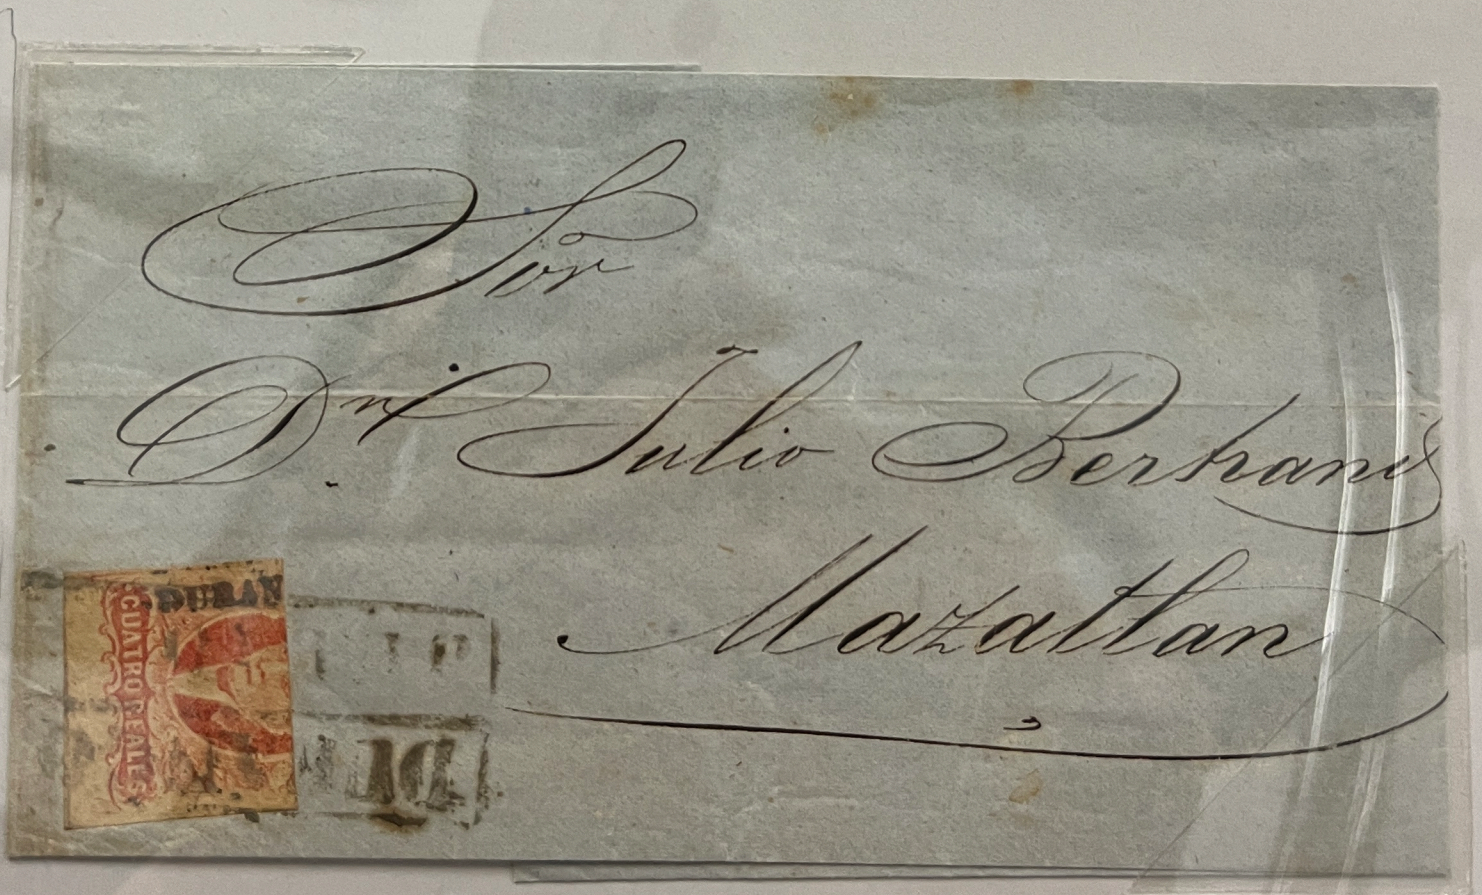 Sor
Dn. Julio Bertrand
Mazatlan
DURAN
CUATRO REALES